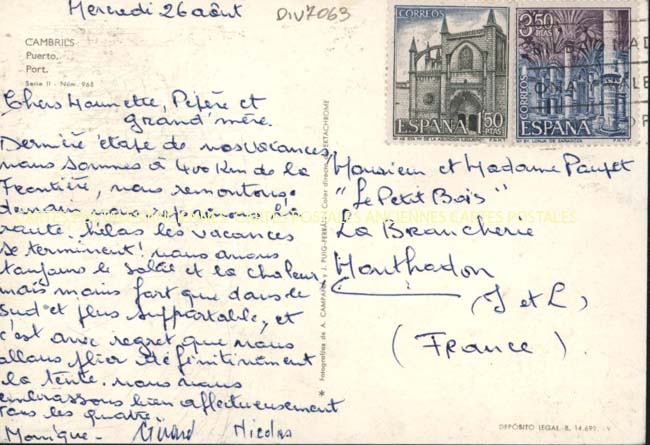 Mercredi 26 août
DIV7063
CAMBRILS
Puerto.
Port.
Serie II - Núm. 968
Chers Mounette, Pépère et
grand'mère.
Dernière étape de nos vacances
nous sommes à 400 Km de la
Frontière, nous remontons
demain nous
route, hélas les vacances
se terminent! nous avons
toujours le soleil et la chaleur
mais moins fort que dans le
sud et plus supportable, et
c'est avec regret que nous
allons plier définitivement
la tente. nous vous
embrassons bien affectueusement
tous les quatre.
Monique - Gérard Nicolas
Fotografías de A. CAMPAÑÁ y J. PUIG-FERRÁN Color directo EKTACHROME
CORREOS
ESPAÑA 1'50 PTAS
CORREOS
3'50 PTAS
ESPAÑA
Monsieur et Madame
"Le Petit Bois"
La Brancherie
Monthodon
(I et L)
(France)
CARTES POSTALES ANCIENNES CARTES POSTALES
DEPÓSITO LEGAL-B. 14.691